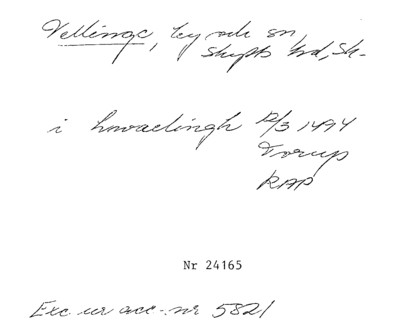 Vellinge, by och sn,
Skytts hd, Sk-
i hwaelingh 12/3 1494
Torup
RAP
Nr 24165
Exc ur acc. nr 5821